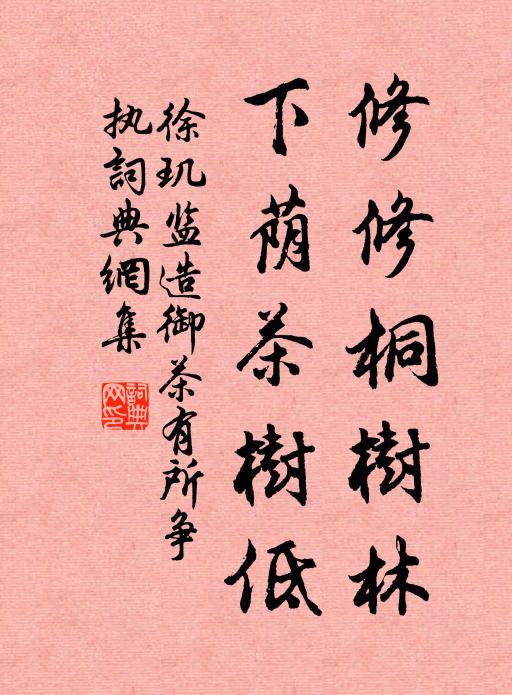 修修桐樹林
下荫茶樹低
徐玑监造御茶有所争
执詞典網集
詞典網印